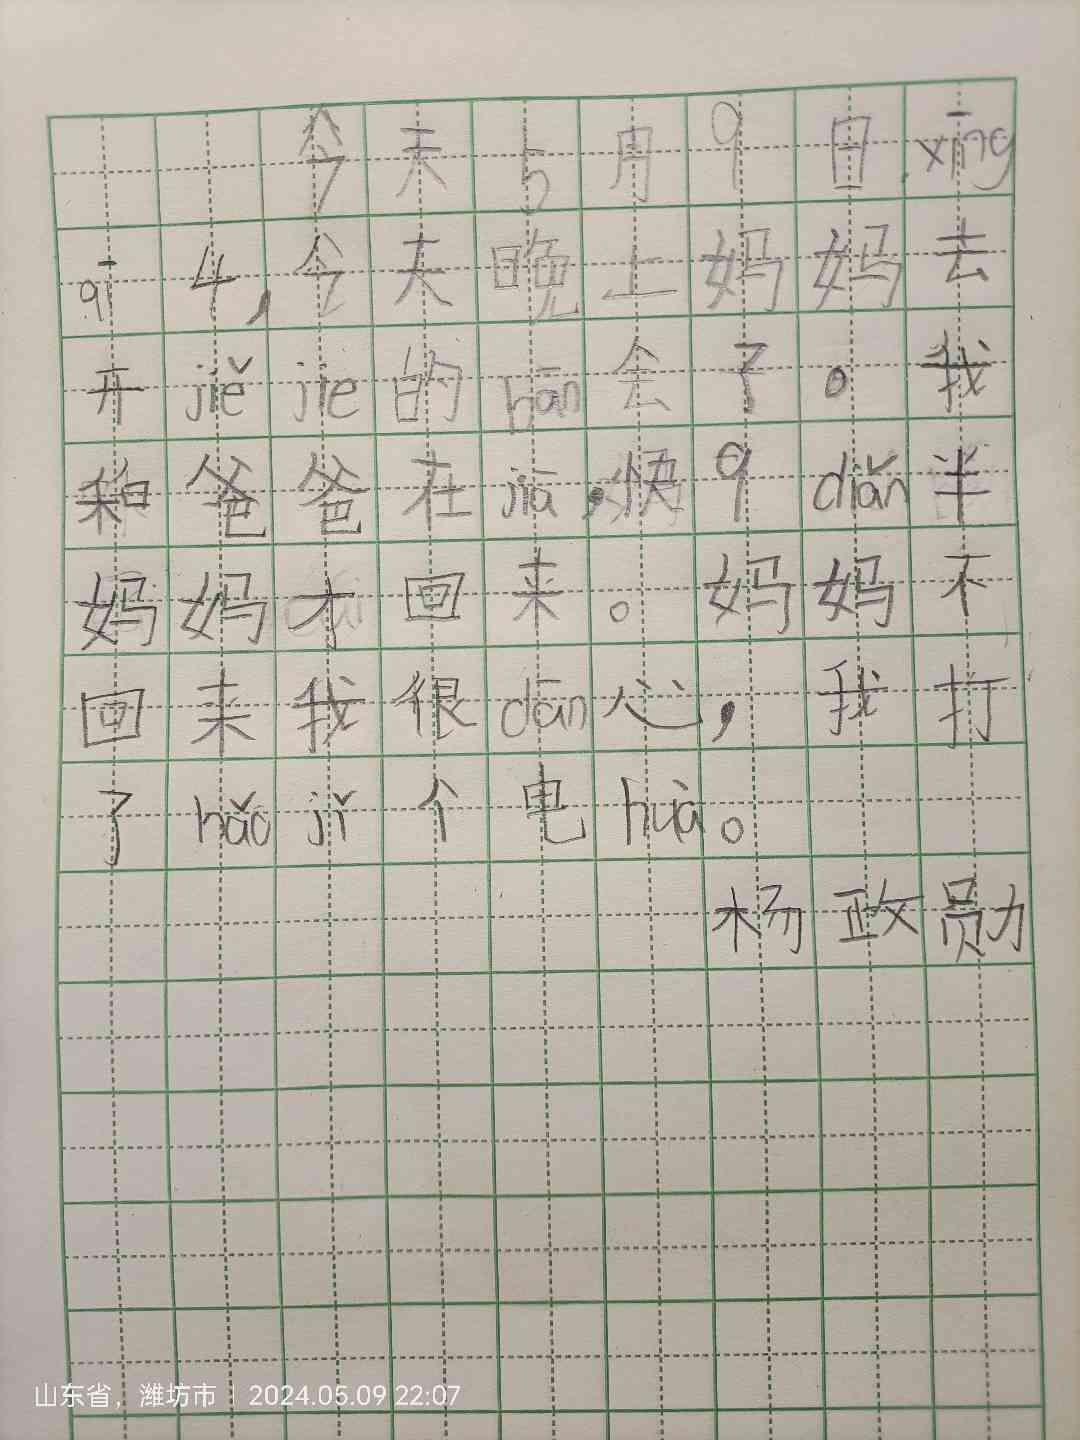 今天5月9日,xīng
qī4,今天晚上妈妈去
开jiějie的bān会了。我
和爸爸在jiā,快9diǎn半
妈妈才回来。妈妈不
回来我很dān心,我打
了hǎojǐ个电huà。
杨政勋
山东省，潍坊市 | 2024.05.09 22:07